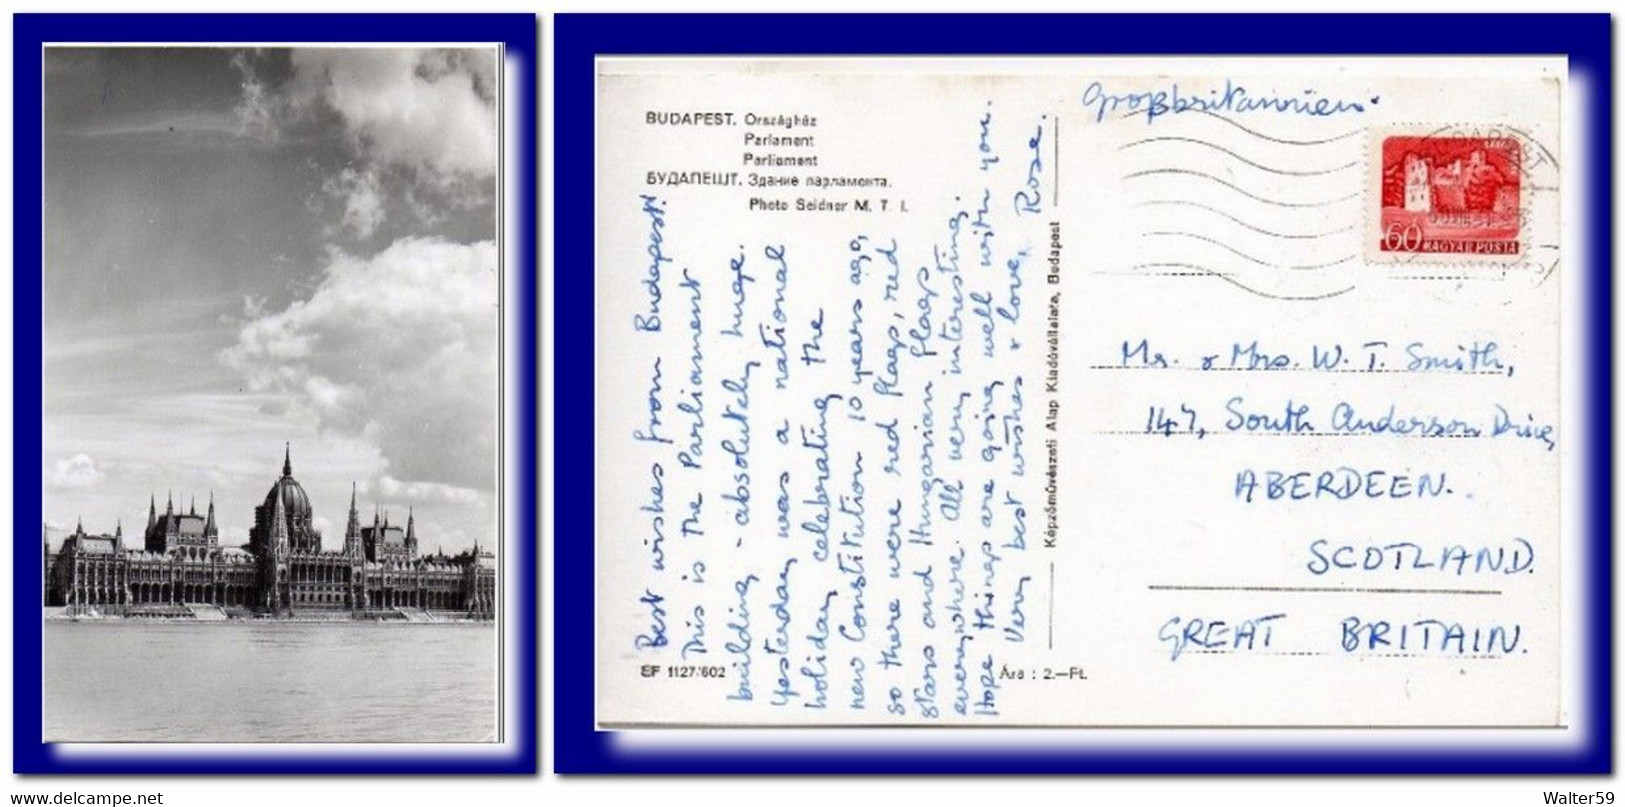 BUDAPEST. Országház
Parlament
Parliament
БУДАПЕШТ. Здание парламента.
Photo Seidner M. T. I.
Best wishes from Budapest!
This is the Parliament
building - absolutely huge.
Yesterday was a national
holiday celebrating the
new Constitution 10 years ago,
so there were red flags, red
stars and Hungarian flags
everywhere. All very interesting.
Hope things are going well with you.
Very best wishes & love, Rose.
EF 1127/602
Ára : 2.—Ft.
Képzőművészeti Alap Kiadóvállalata, Budapest
Großbritannien.
60 MAGYAR POSTA
Mr. & Mrs. W. T. Smith,
147, South Anderson Drive,
ABERDEEN.
SCOTLAND.
GREAT BRITAIN.
www.delcampe.net
Walter59